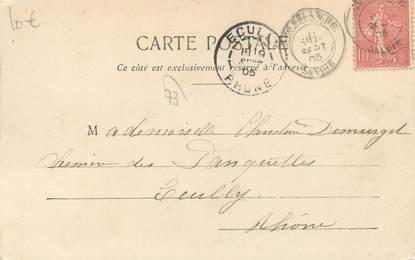 10 €
CARTE P
Ce côté est exclusivement réservé à l'adresse
ECULLY
SEPT
05
RHONE
SEPT
05
SAVOIE
10
73
Mademoiselle Claudia Demurget
Chemin des Panguelles
Ecully
Rhône